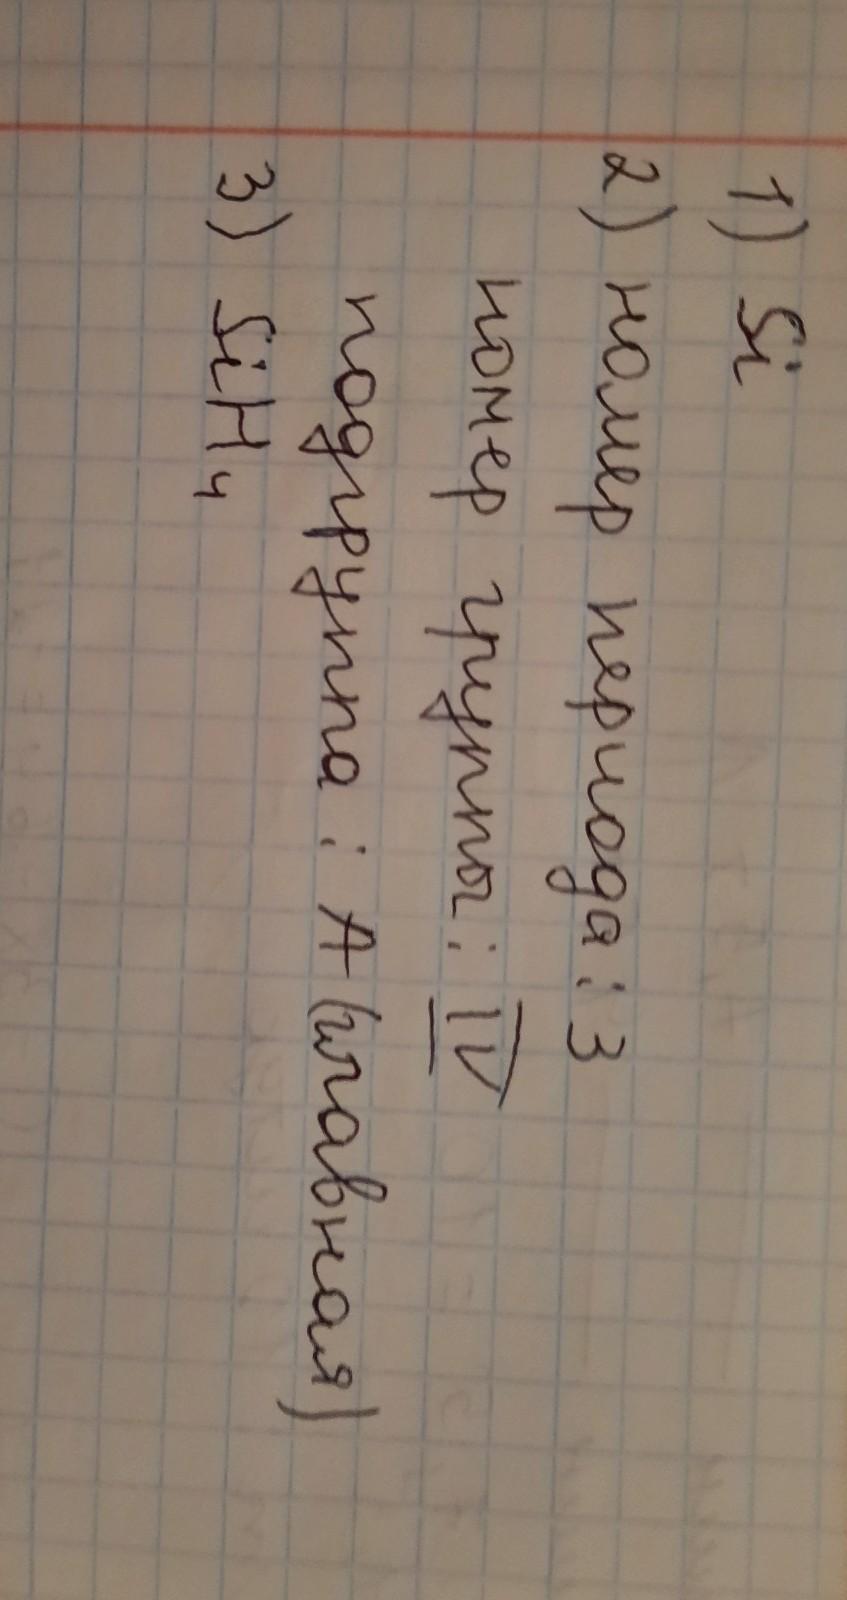 1) Si
2) номер периода: 3
номер группы: IV
подгруппа: А (главная)
3) SiH₄